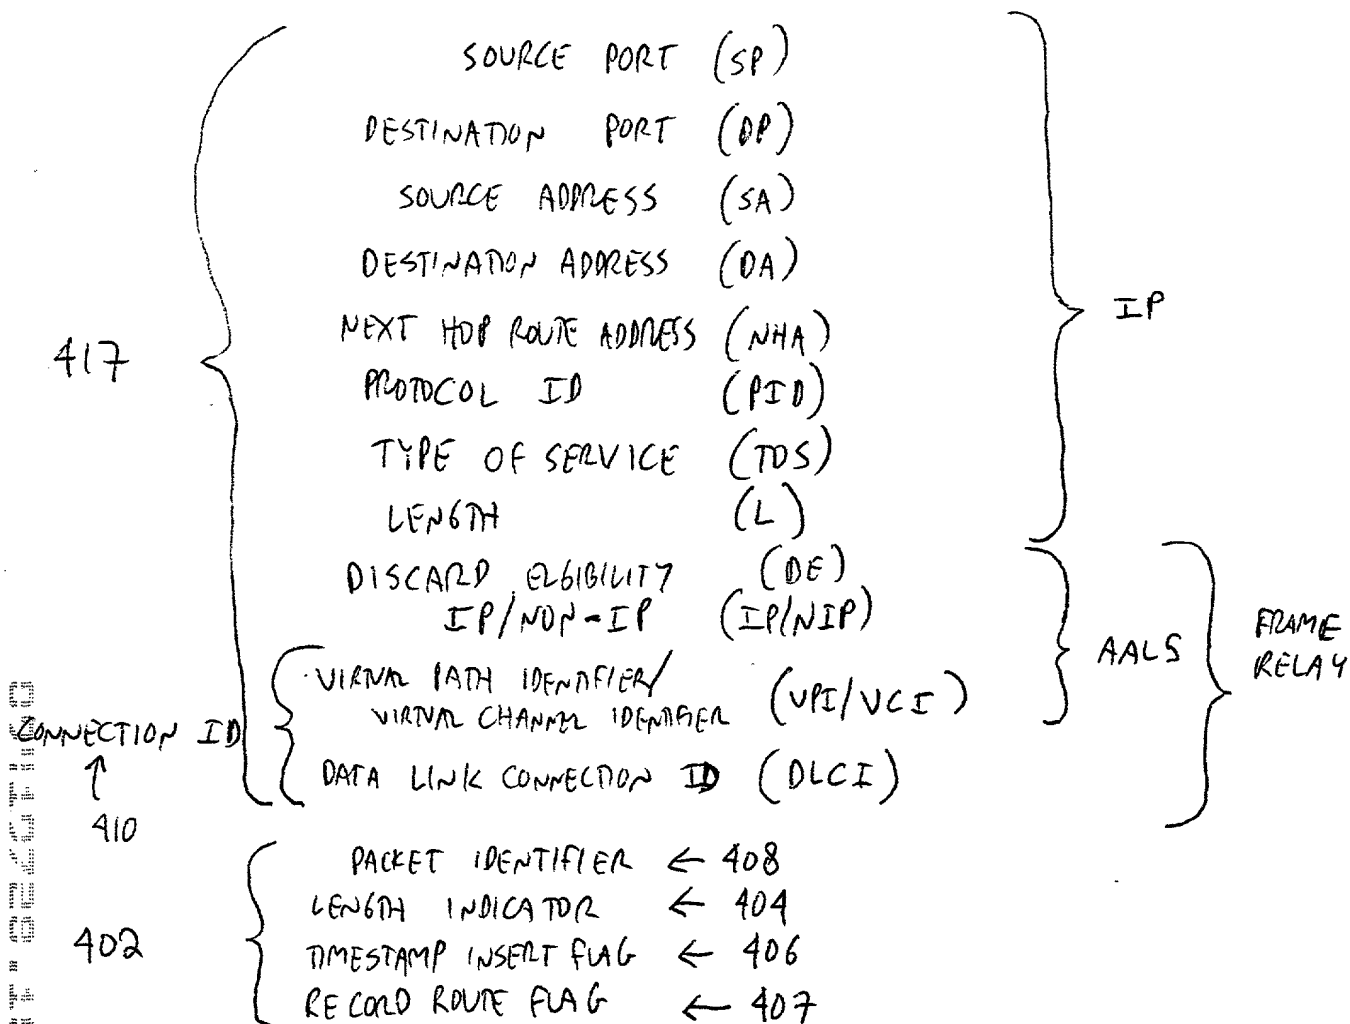 SOURCE PORT (SP)
DESTINATION PORT (DP)
SOURCE ADDRESS (SA)
DESTINATION ADDRESS (DA)
NEXT HOP ROUTE ADDRESS (NHA)
IP
417
PROTOCOL ID (PID)
TYPE OF SERVICE (TOS)
LENGTH (L)
DISCARD ELGIBILITY (DE)
IP/NON-IP (IP/NIP)
AAL5
FRAME RELAY
VIRTUAL PATH IDENTIFIER/
VIRTUAL CHANNEL IDENTIFIER (VPI/VCI)
CONNECTION ID
410
DATA LINK CONNECTION ID (DLCI)
402
PACKET IDENTIFIER ← 408
LENGTH INDICATOR ← 404
TIMESTAMP INSERT FLAG ← 406
RECORD ROUTE FLAG ← 407